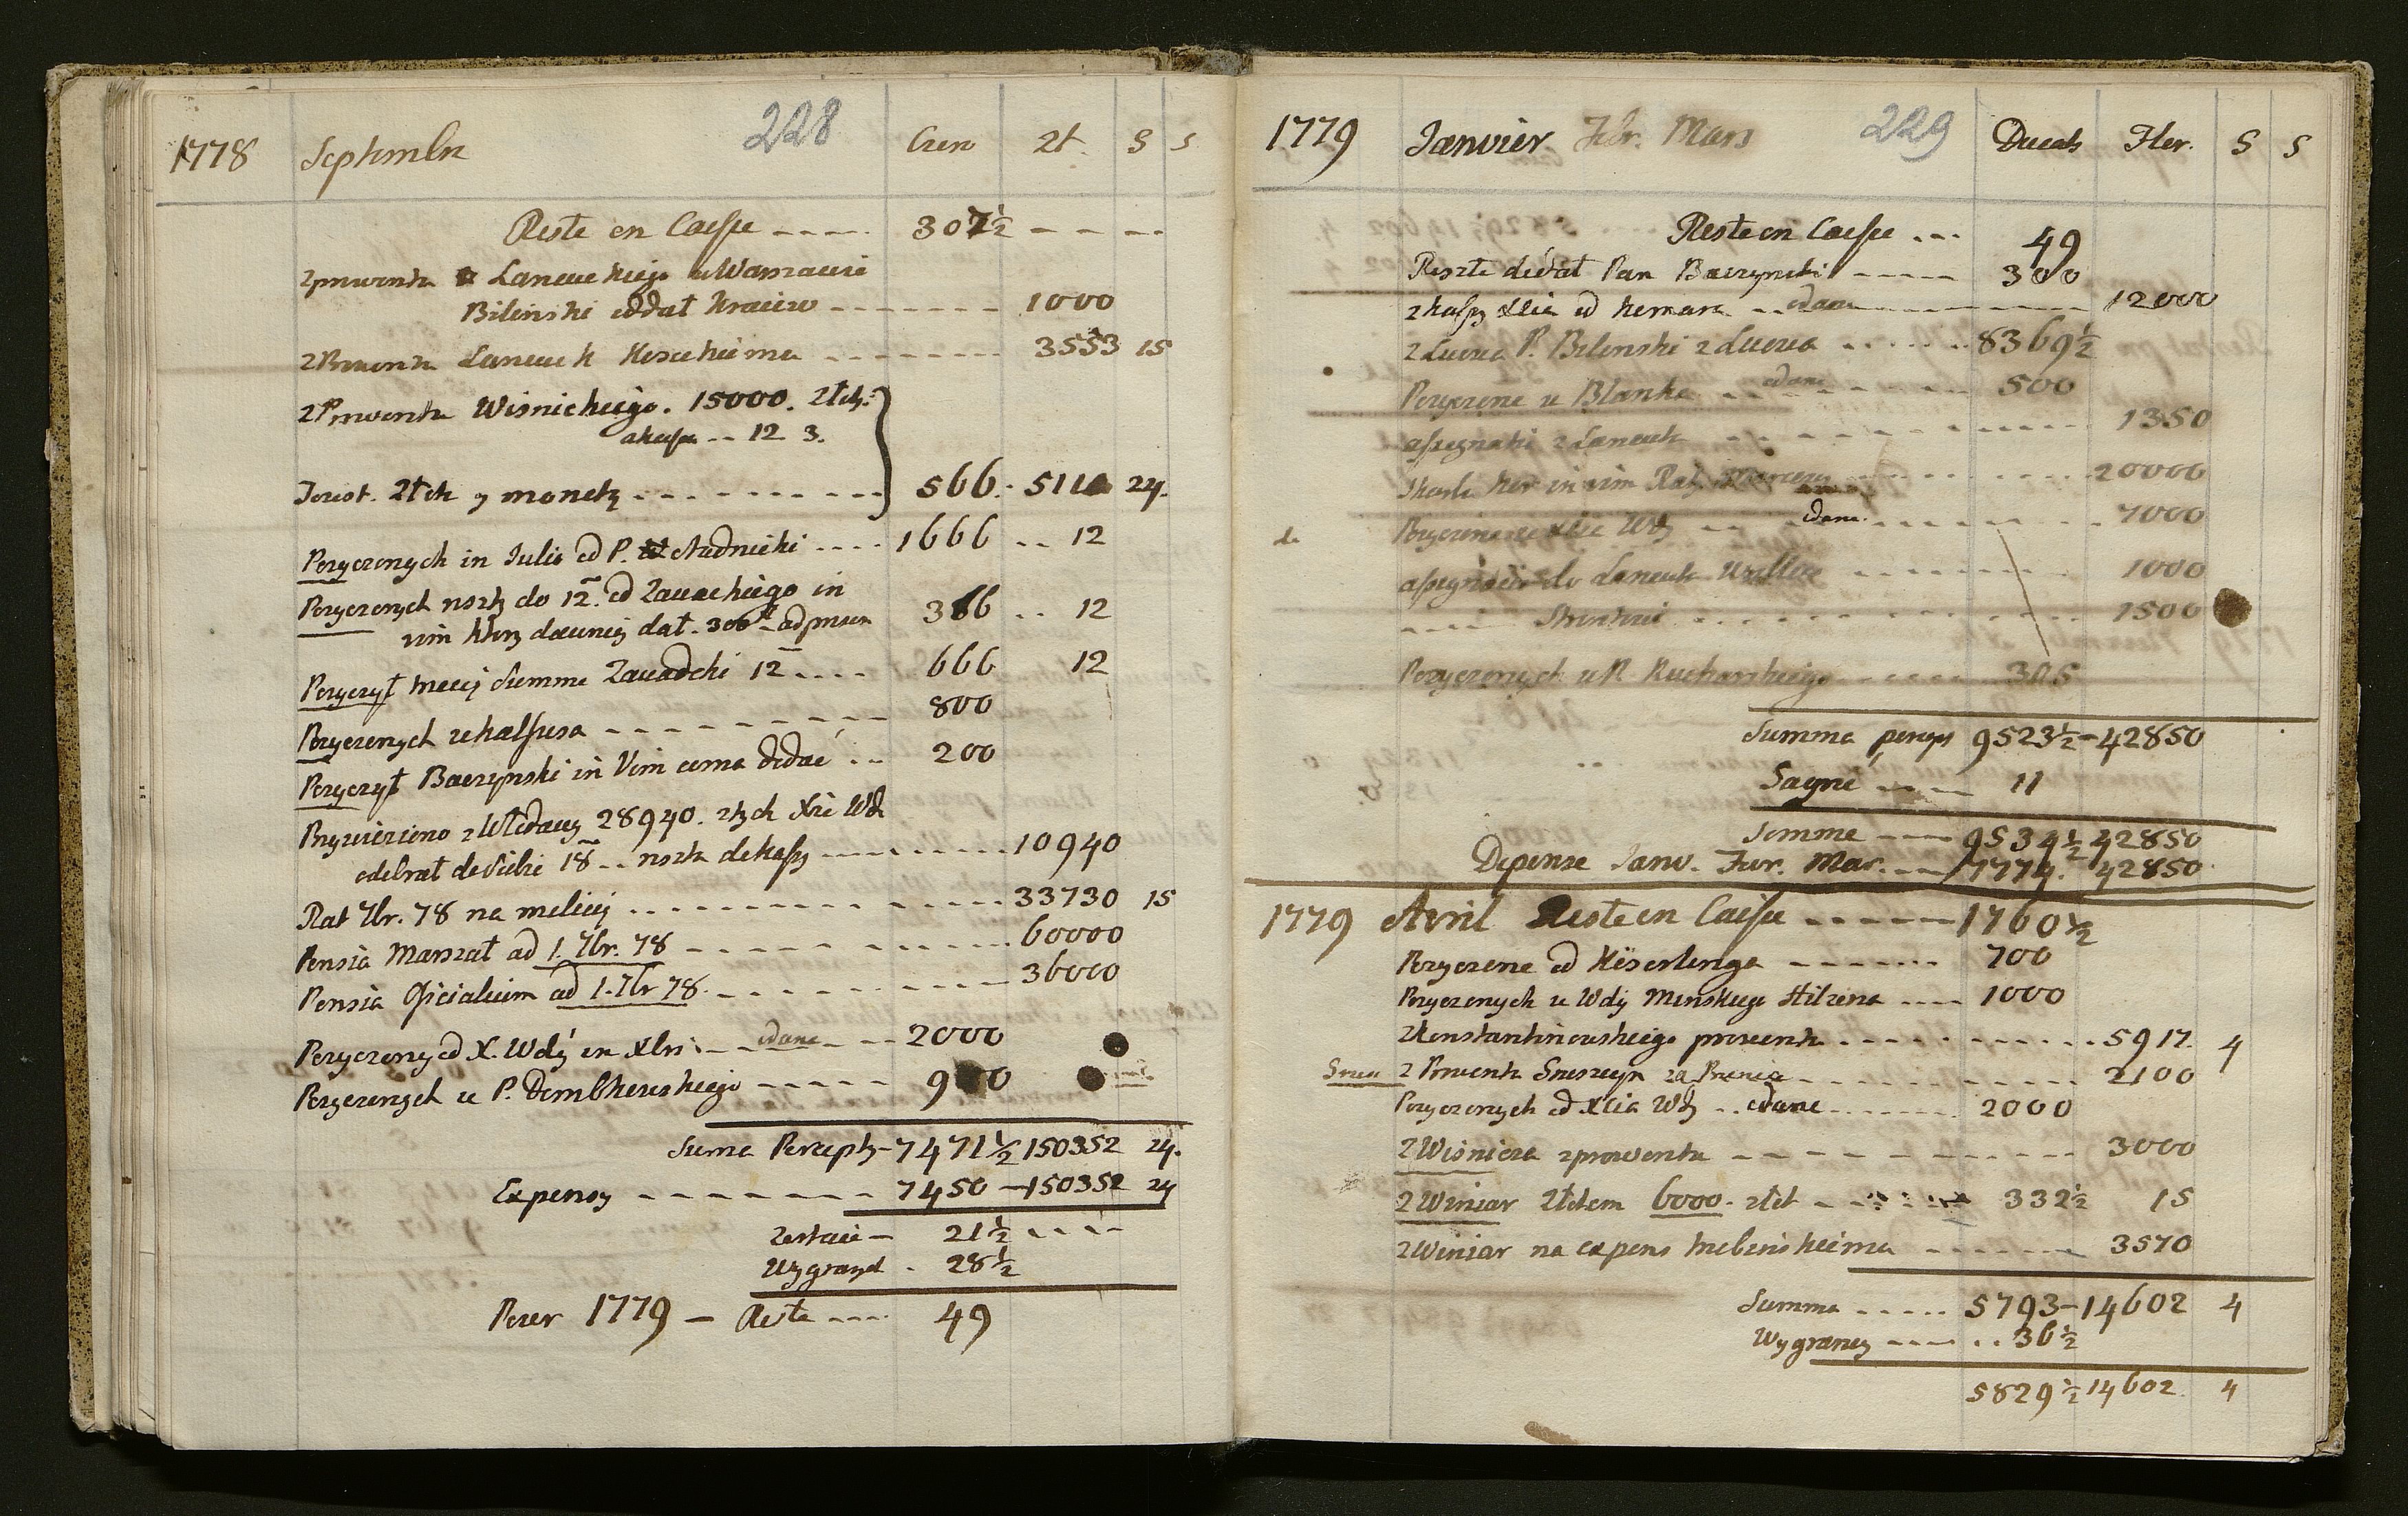 228
1778 Septembr Czer zł. S S
Reste en Caisse ---- 307½ - - --
z prowentu Łancuckiego w Warszawie
Bilinski oddał Kraiew ------- 1000
z Prowentu Łancuck -------- 3553 15
z Prowentu Wisnickiego. 15000. złch.
a kassa -- 12 3.
złch y monety --------- 566. - 511 24.
Pozyczonych in Julio od P. Studnicki .... 1666 .. 12
Pozyczonych reszty do 12. od Zawackiego in
vim ktorz dawniey dał. 300 386 .. 12
Pozyczył wiecey Summe Zawadcki 12 .... 666 12
Pozyczonych --------- 800
Pozyczył Baczynski in Vim coma oddać ... 200
Przywieziono z Włodawy 28940. złych Xże Wd
odebrał do siebie 18 .. reszta do kassy -------- 10940
Rat 7br. 78 na milicij ------------ 33730 15
Pensia Marszał ad 1. 7br. 78 ---------- 60000
Pensia Oficialium ad 1. 7br 78. --------- 36000
Pozyczony od X. Wdy en Xbri -- odane --- 2000
Pozyczonych u P. Dembkowskiego ----- 9 0
Suma Percepty - 7471½ 150352 24.
Expensy -------- 7450 - 150352 24
Zostaie - 21½ ----
Wygranych . 28½
Pour 1779 - Reste ---- 49
229
1779 Janvier Febr. Mars Ducats Flor. S S
Reste en Caisse ... 49
Reszte dodał Pan Baczynski ----- 300
z kassy Xcia od -- odane -------- 12000
z Lwowa P. Bilinski z Lwowa ...... 8369½
Pozyczone u Blanka -- odane ------ 500
assygnatii z Łancuta -------- 1350
in vim Raty ........ 20000
Pozyczone Xcie Wdy -- odane. ...... 7000
do Łancuta ------- 1000
----- ........ 1500
Pozyczonych u P. Kucharskiego ----- 305
Summa percep 9523½ - 42850
Gagné ---- 11
Somme ---- 9534½ 42850
Depense Janv. Fevr. Mar. --- 7774. 42850
1779 Avril Reste en Caisse ------ 1760½
Pozyczone od Keserlinga ------- 700
Pozyczonych u Wdy Minskiego Hilzena ---- 1000
z Konstantinowskiego prowentu ............ 5917. 4
z Prowentu za ------------ 2100
Pozyczonych od Xcia Wdy .. odane -------- 2000
z Wisnicza z prowentu ----------- 3000
z Winiar złotem 6000. złch ------ 332½ 15
z Winiar na expens ------- 3570
Summa ----- 5793 - 14602 4
Wygraney ---- .. 36½
5829½ 14602 4